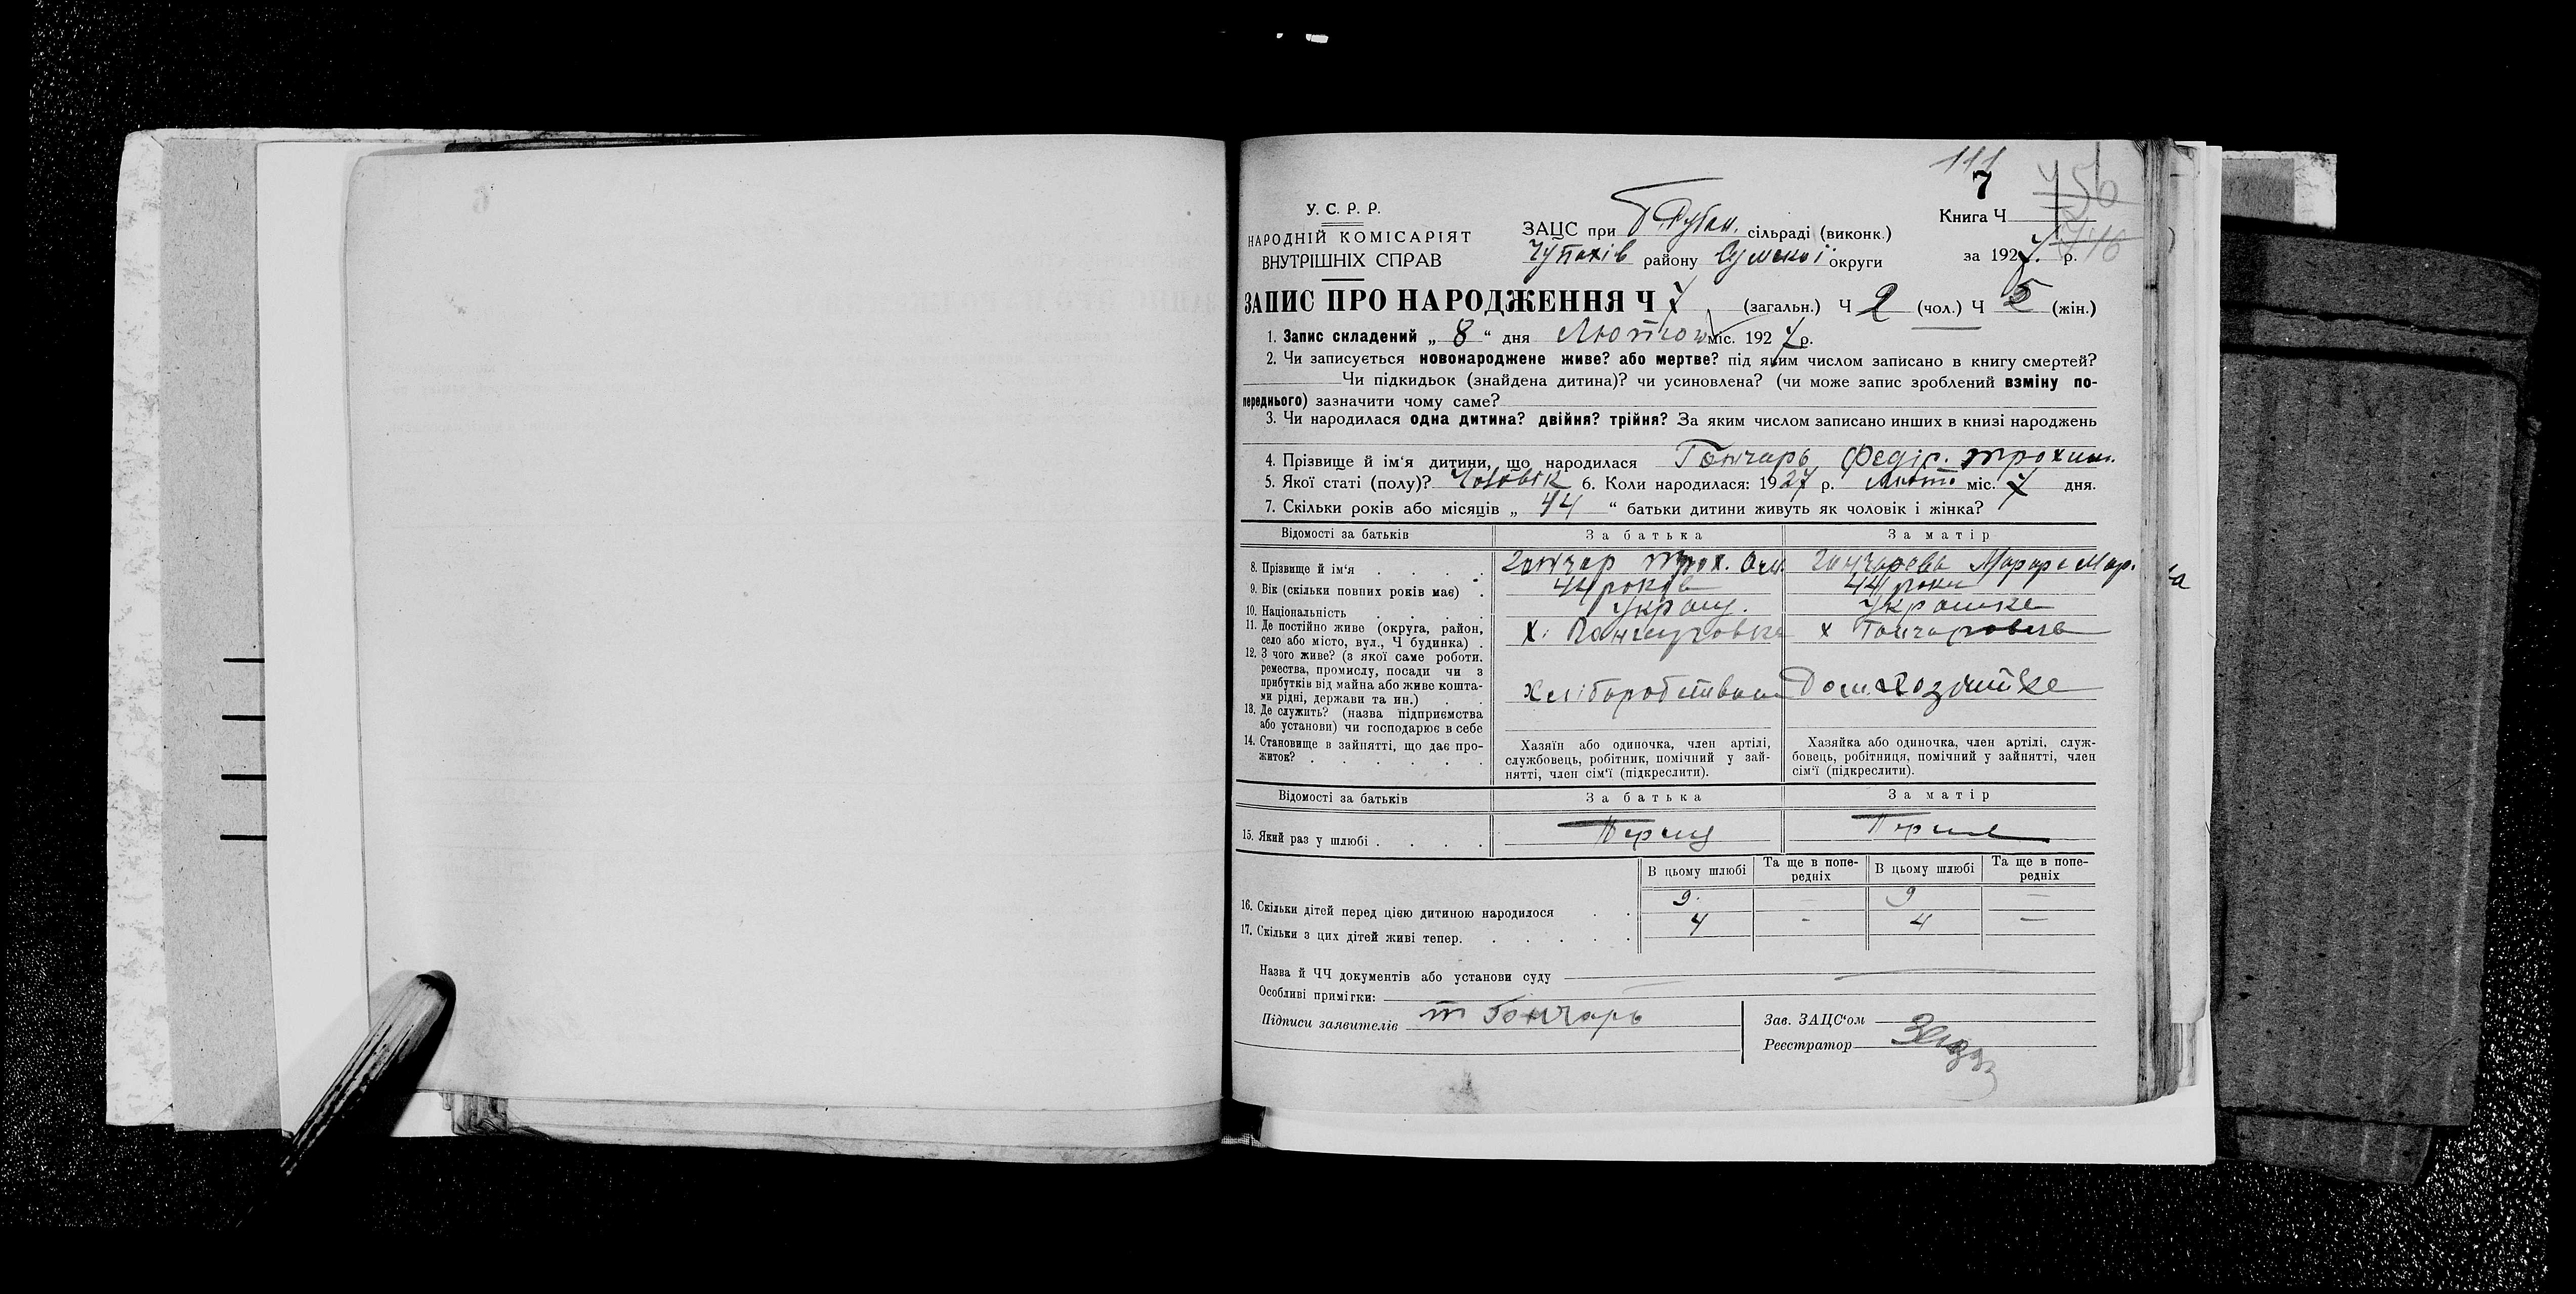 111
7
У. С. Р. Р.
НАРОДНІЙ КОМІСАРІЯТ
ВНУТРІШНІХ СПРАВ
ЗАЦС при сільраді (виконк.)
Чупахів району Сумської округи
Книга Ч
за 1927 р.
ЗАПИС ПРО НАРОДЖЕННЯ Ч 7 (загальн.) Ч 2 (чол.) Ч 5 (жін.)
1. Запис складений „ 8 “ дня Лютого міс. 1927 р.
2. Чи записується новонароджене живе? або мертве? під яким числом записано в книгу смертей?
Чи підкидьок (знайдена дитина)? чи усиновлена? (чи може запис зроблений взміну по-
переднього) зазначити чому саме?
3. Чи народилася одна дитина? двійня? трійня? За яким числом записано инших в книзі народжень
4. Прізвище й ім'я дитини, що народилася Гончарь Федір. Трохим.
5. Якої статі (полу)? Чоловік 6. Коли народилася: 1927 р. Лютг міс. 7 дня.
7. Скільки років або місяців „ “ батьки дитини живуть як чоловік і жінка?
Відомості за батьків За батька За матір
8. Прізвище й ім'я . . . . Гончар Трох. Гончарова Мар.
9. Вік (скільки повних років має) . 44 років 44 роки
10. Національність Украиц. Украинка
11. Де постійно живе (округа, район,
село або місто, вул., Ч будинка) . х. х Гончаровка
12. З чого живе? (з якої саме роботи.
ремества, промислу, посади чи з
прибутків від майна або живе кошта-
ми рідні, держави та ин.) . . Хліборобством Дом. Хозяйке
13. Де служить? (назва підприємства
або установи) чи господарює в себе
14. Становище в зайнятті, що дає про-
житок? . . . . . .
Хазяїн або одиночка, член артілі,
службовець, робітник, помічний у зай-
нятті, член сім'ї (підкреслити).
Хазяйка або одиночка, член артілі, служ-
бовець, робітниця, помічний у зайнятті, член
сім'ї (підкреслити).
Відомості за батьків За батька За матір
15. Який раз у шлюбі . . . . Перший Перше
В цьому шлюбі Та ще в попе-
редніх В цьому шлюбі Та ще в попе-
редніх
16. Скільки дітей перед цією дитиною народилося . . 9. — 9 —
17. Скільки з цих дітей живі тепер. . . . . . 4 - 4 —
Назва й ЧЧ документів або установи суду
Особливі примітки:
Підписи заявителів т Гончарь
Зав. ЗАЦС'ом
Реєстратор